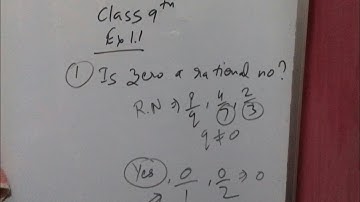 Class 9th
Ex 1.1
① Is zero a rational no?
R.N ⇒ p/q, 4/7, 2/3
q ≠ 0
Yes, 0/1, 0/2 ⇒ 0